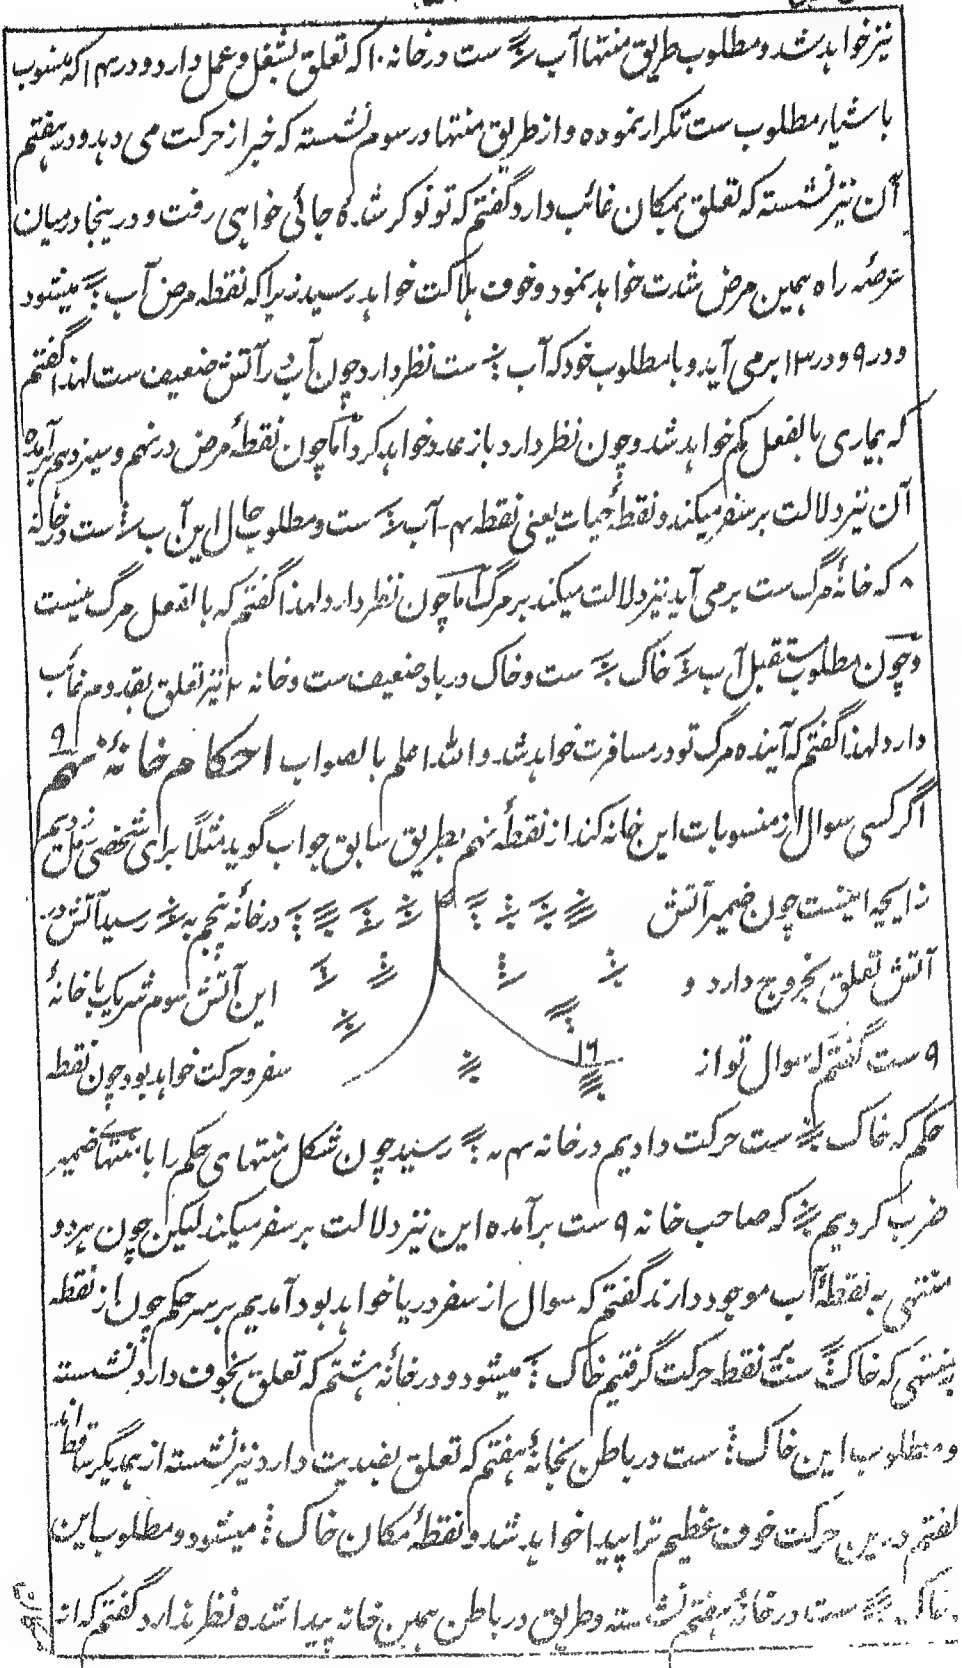 نیز خواهد شد و مطلوب طریق منتها آب ست در خانه ۱۰ که تعلق بشغل و عمل دارد و در ۱۳ که منسوب
باشیاء مطلوب ست تکرار نموده و از طریق منتها در سوم نشسته که خبر از حرکت می دهد و در هفتم
آن نیز نشسته که تعلق بمکان غائب دارد گفتم که تو نوکر شده جائی خواهی رفت و درینجا درمیان
عرصه راه همین مرض شدت خواهد نمود و خوف هلاکت خواهد رسید زیراکه نقطه مرض آب میشود
و در ۹ و در ۱۳ برمی آید و با مطلوب خود که آب ست نظر دارد چون آب در آتش ضعیف ست لهذا گفتم
که بیماری بالفعل کم خواهد شد و چون نظر دارد باز عود خواهد کرد اما چون نقطهٔ مرض در نهم و سیزدهم برآمده
آن نیز دلالت بر سفر میکند و نقطهٔ حیات یعنی نقطه آب ست و مطلوب حال این آب ست در خانه
۸ که خانهٔ مرگ ست برمی آید نیز دلالت میکند بر مرگ اما چون نظر دارد لهذا گفتم که بالفعل مرگ نیست
و چون مطلوب مستقبل آب خاک ست و خاک در باد ضعیف ست و خانه نیز تعلق بقدوم غائب
دارد لهذا گفتم که آینده مرگ تو در مسافرت خواهد شد والله اعلم بالصواب احکام خانهٔ نهم ۹
اگر کسی سوال از منسوبات این خانه کند از نقطهٔ نهم بطریق سابق جواب گوید مثلاً برای شخصی رمل زدیم
زایچه اینست چون ضمیر آتش در خانهٔ پنجم به رسید آتش در
آتش تعلق بخروج دارد و این آتش سوم شریک با خانهٔ
۹ ست گفتم که سوال تو از سفر و حرکت خواهد بود چون نقطه
۱۶
حکم که خاک ست حرکت دادیم در خانه رسید چون شکل منتهای حکم را با منتهای ضمیر
ضرب کردیم که صاحب خانه ۹ ست برآمده این نیز دلالت بر سفر میکند لیکن چون هر دو
منتهی به نقطهٔ آب موجود دارند گفتم که سوال از سفر دریا خواهد بود آمدیم بر سر حکم چون از نقطه
منتهی که خاک ست نقطه حرکت گرفتیم خاک میشود و در خانهٔ هشتم که تعلق بخوف دارد نشسته
و مطلوب این خاک ست در باطن بخانهٔ هفتم که تعلق بضدیت دارد نیز نشسته از همدیگر ساقط اند
گفتم درین حرکت خوف عظیم ترا پیدا خواهد شد و نقطهٔ مکان خاک میشود و مطلوب این
خاک ست در خانهٔ هفتم نشسته و طریق در باطن همین خانه پیدا شده نظر ندارد گفتم که از